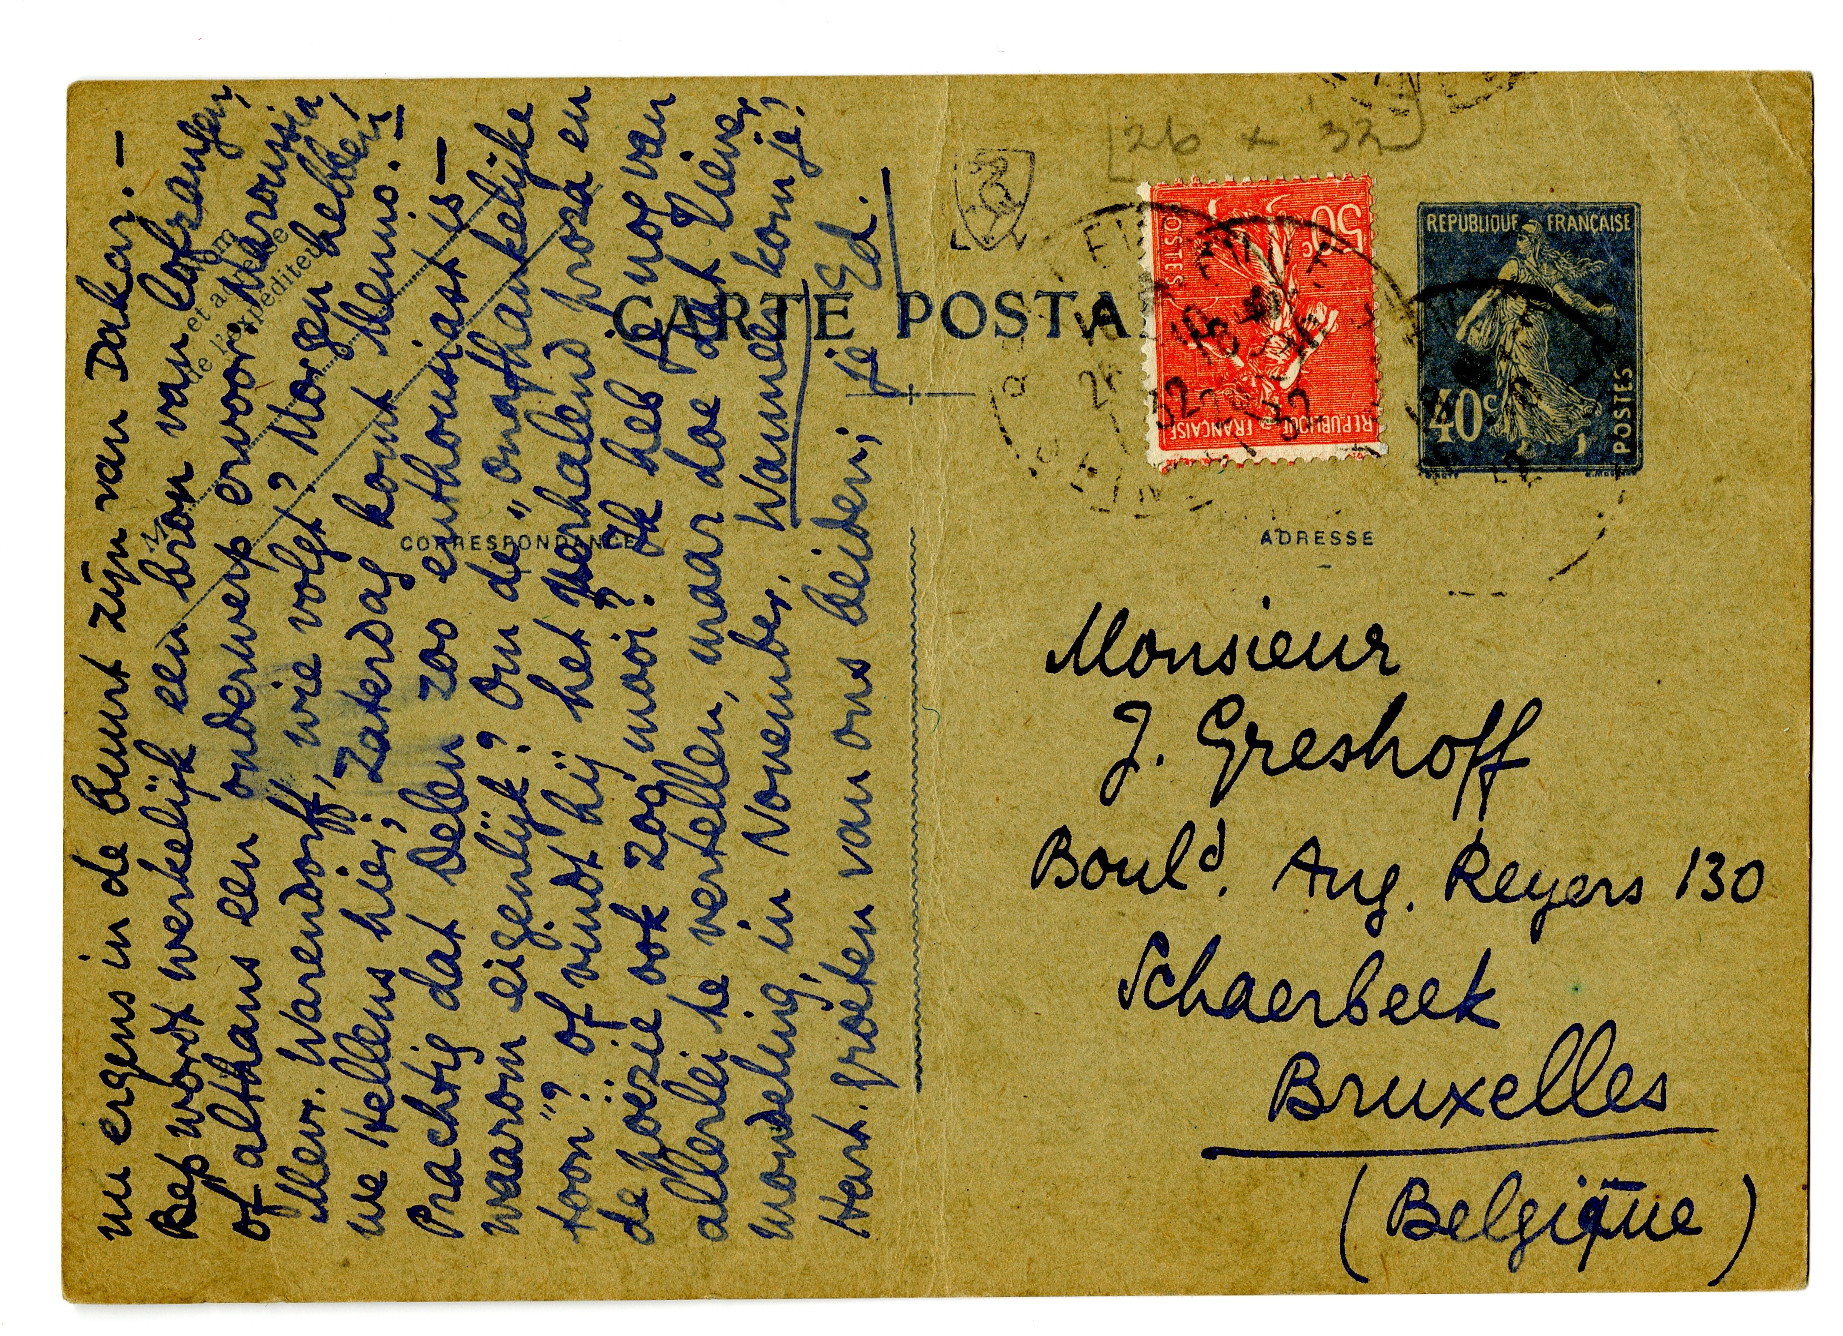 nu ergens in de buurt zijn van Dakar. —
Bep wordt werkelijk een bron van lofzangen,
of althans een onderwerp ervoor. Marounia,
Mevr. Warendorff, wie volgt? Morgen hebben
we Hellens hier; Zaterdag komt Menno! —
Prachtig dat Delen zoo enthousiast is —
waarom eigenlijk? Om de "onafhankelijke
toon"? of vindt hij het verhalend proza en
de poëzie ook zoo mooi? Ik heb je nog van
allerlei te vertellen, maar doe dat liever
mondeling, in November. Wanneer kom je?
Hart. groeten van ons beiden; je Ed.
Nom et adresse
de l'expéditeur
CARTE POSTA
CORRESPONDANCE
ADRESSE
[26 x 32]
50c
POSTES
REPUBLIQUE FRANÇAISE
32
32
REPUBLIQUE FRANÇAISE
40c
POSTES
Monsieur
J. Greshoff
Bould. Aug. Reyers 130
Schaerbeek
Bruxelles
(Belgique)